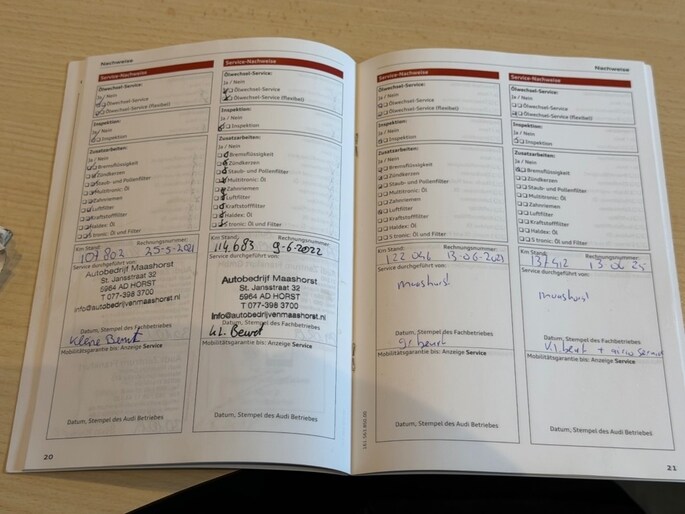 Nachweise
Service-Nachweise
Ölwechsel-Service:
Ja / Nein
Ölwechsel-Service
Ölwechsel-Service (flexibel)
Inspektion:
Ja / Nein
Inspektion
Zusatzarbeiten:
Ja / Nein
Bremsflüssigkeit
Zündkerzen
Staub- und Pollenfilter
Multitronic: Öl
Zahnriemen
Luftfilter
Kraftstofffilter
Haldex: Öl
S tronic: Öl und Filter
Km Stand: Rechnungsnummer:
107.803 25-5-2021
Service durchgeführt von:
Autobedrijf Maashorst
St. Jansstraat 32
5964 AD HORST
T 077-398 3700
info@autobedrijvenmaashorst.nl
Datum, Stempel des Fachbetriebes
Kleine Beurt
Mobilitätsgarantie bis: Anzeige Service
Datum, Stempel des Audi Betriebes
20
Service-Nachweise
Ölwechsel-Service:
Ja / Nein
Ölwechsel-Service
Ölwechsel-Service (flexibel)
Inspektion:
Ja / Nein
Inspektion
Zusatzarbeiten:
Ja / Nein
Bremsflüssigkeit
Zündkerzen
Staub- und Pollenfilter
Multitronic: Öl
Zahnriemen
Luftfilter
Kraftstofffilter
Haldex: Öl
S tronic: Öl und Filter
Km Stand: Rechnungsnummer:
114.683 9-6-2022
Service durchgeführt von:
Autobedrijf Maashorst
St. Jansstraat 32
5964 AD HORST
T 077-398 3700
info@autobedrijvenmaashorst.nl
Datum, Stempel des Fachbetriebes
kl. Beurt
Mobilitätsgarantie bis: Anzeige Service
Datum, Stempel des Audi Betriebes
Nachweise
Service-Nachweise
Ölwechsel-Service:
Ja / Nein
Ölwechsel-Service
Ölwechsel-Service (flexibel)
Inspektion:
Ja / Nein
Inspektion
Zusatzarbeiten:
Ja / Nein
Bremsflüssigkeit
Zündkerzen
Staub- und Pollenfilter
Multitronic: Öl
Zahnriemen
Luftfilter
Kraftstofffilter
Haldex: Öl
S tronic: Öl und Filter
Km Stand: Rechnungsnummer:
122 046
Service durchgeführt von:
Datum, Stempel des Fachbetriebes
gr. beurt
Mobilitätsgarantie bis: Anzeige Service
Datum, Stempel des Audi Betriebes
Service-Nachweise
Ölwechsel-Service:
Ja / Nein
Ölwechsel-Service
Ölwechsel-Service (flexibel)
Inspektion:
Ja / Nein
Inspektion
Zusatzarbeiten:
Ja / Nein
Bremsflüssigkeit
Zündkerzen
Staub- und Pollenfilter
Multitronic: Öl
Zahnriemen
Luftfilter
Kraftstofffilter
Haldex: Öl
S tronic: Öl und Filter
Km Stand: Rechnungsnummer:
Service durchgeführt von:
Datum, Stempel des Fachbetriebes
kl beurt + airco
Mobilitätsgarantie bis: Anzeige Service
Datum, Stempel des Audi Betriebes
21